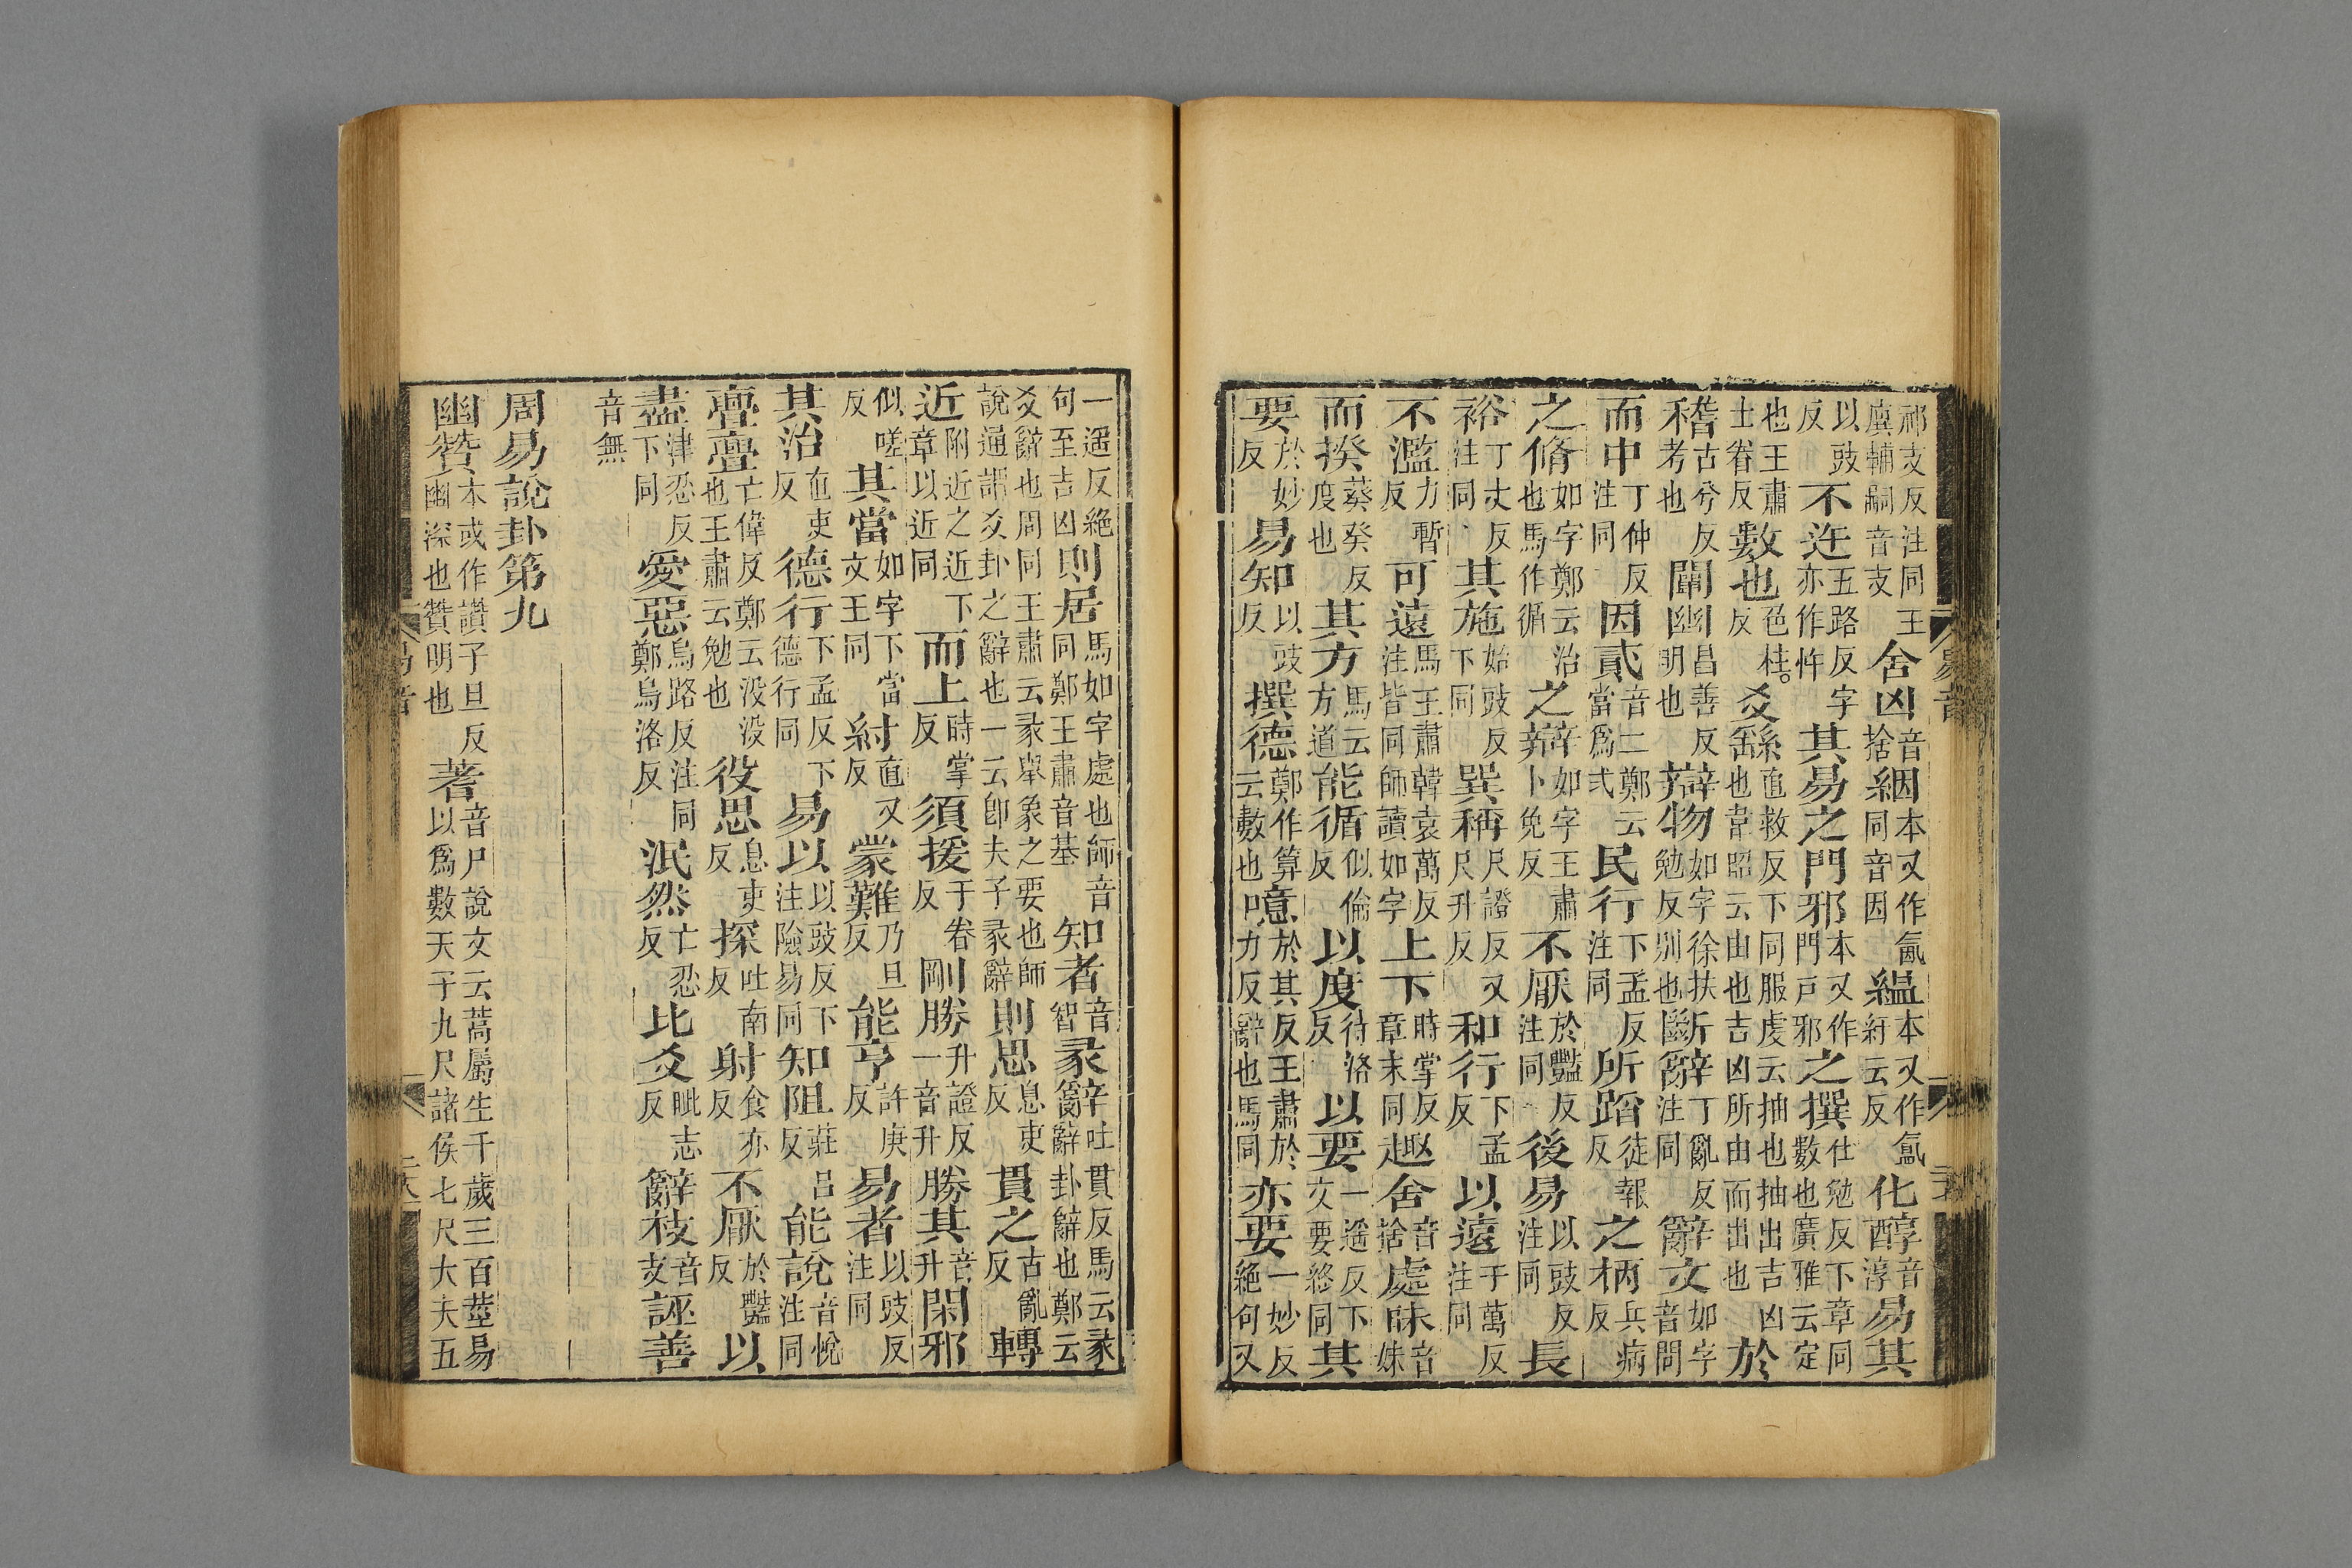 祁支反注同王廙輔嗣音支舍凶音捨絪本又作氤同音因緼本又作氳紆云反化醇音淳易其
以豉反不迕五路反字亦作忤其易之門邪本又作門戸邪之撰仕勉反下章同數也廣雅云定
也王肅士眷反數也色柱反爻繇直救反下同服虔云抽也抽出吉凶也韋昭云由也吉凶所由而出也於
稽古兮反考也闡幽昌善反明也辯物如字徐扶勉反别也斷辭丁亂反注同辭文如字音問
而中丁仲反注同因貳音二鄭云當爲弍民行下孟反注同所蹈徒報反之柄兵病反
之脩如字鄭云治也馬作循之辯如字王肅卜免反不厭於豔反注同後易以豉反注同長
裕丁丈反注同其施始豉反下同巽稱尺證反又尺升反和行下孟反以遠于萬反注同
不濫力暫反可遠馬王肅韓袁萬反注皆同師讀如字上下時掌反章末同趣舍音捨處昧音妹
而揆葵癸反度也其方馬云方道能循似倫反以度待洛反以要一遥反下文要終同其
要於妙反易知以豉反撰德鄭作算云數也噫於其反王肅於力反辭也馬同亦要一妙反絶句又
一遥反絶句至吉凶則居馬如字處也師音同鄭王肅音基知者音智彖辭吐貫反馬云彖辭卦辭也鄭云
爻辭也周同王肅云彖舉象之要也師說通謂爻卦之辭也一云卽夫子彖辭則思息吏反貫之古亂反轉
近附近之近下章以近同而上時掌反須援于眷反剛勝升證反一音升勝其音升閑邪
似嗟反其當如字下當文王同紂直又反蒙難乃旦反能亨許庚反易者以豉反注同
其治直吏反德行下孟反下德行同易以以豉反下注險易同知阻莊吕反能說音悅注同
亹亹亡偉反鄭云没没也王肅云勉也役思息吏反探吐南反射食亦反不厭於豔反以
盡津忍反下同愛惡烏路反注同鄭烏洛反泯然亡忍反比爻毗志反辭枝音支誣善
音無
周易說卦第九
幽贊本或作讃子旦反幽深也贊明也蓍音尸說文云蒿屬生千歲三百莖易以爲數天子九尺諸侯七尺大夫五
易音
易音